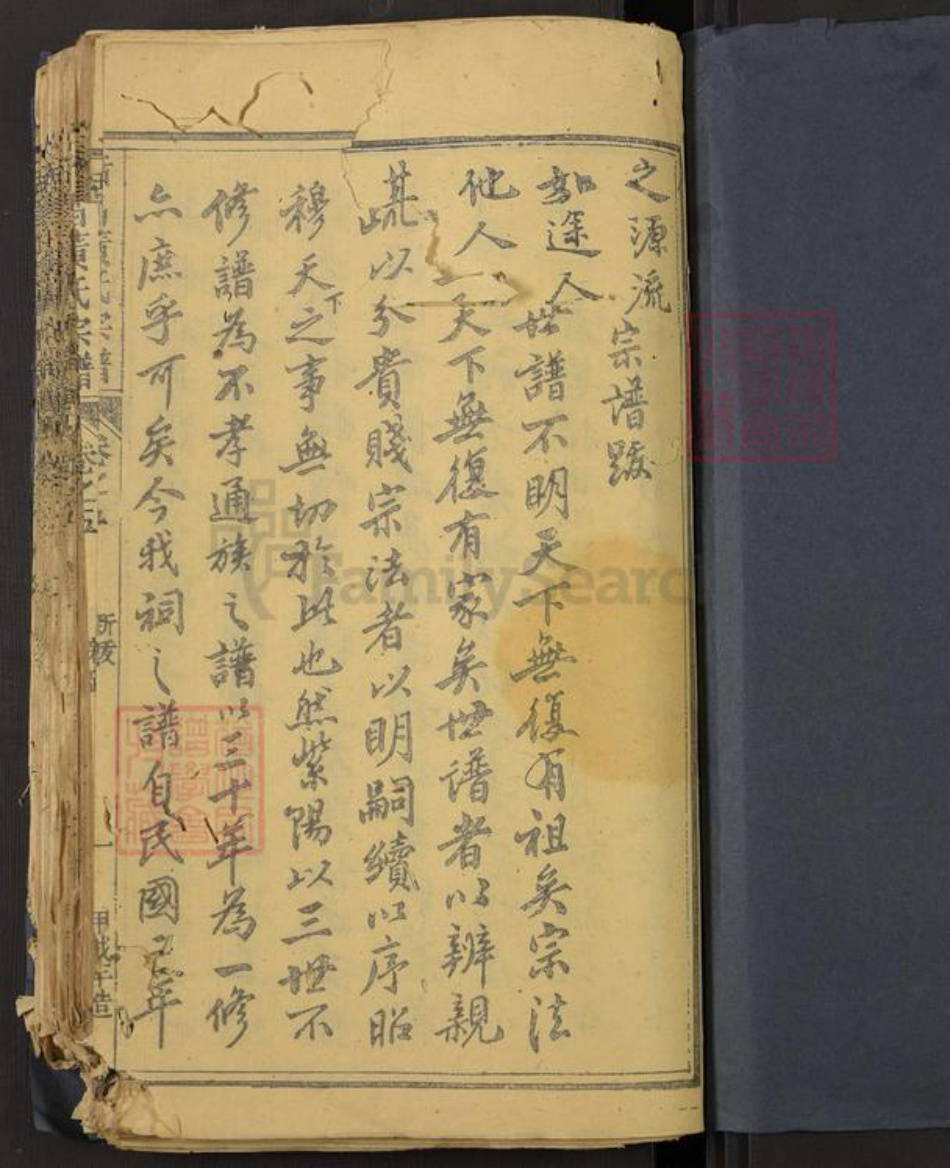 之源流宗譜跋
如途人世譜不明天下無復有祖矣宗法
他人一天下無復有家矣世谱者以辨親
疏以分貴賤宗法者以明嗣續以序昭
穆天下之事無切於此也然紫陽以三世不
修譜為不孝通族之譜以三十年為一修
亦庶乎可矣今我祠之譜自民國二年
黃氏宗譜
卷之五
所
跋
甲戌年造
FamilySearch